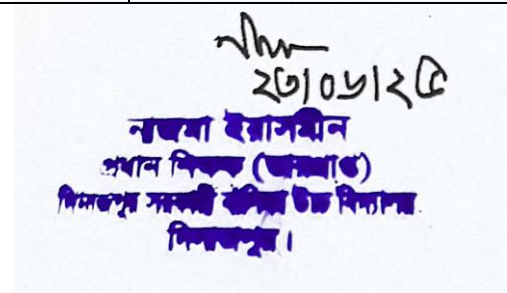 ২৩।০৬।২৫
নাজমা ইয়াসমীন
প্রধান শিক্ষক (ভারপ্রাপ্ত)
দিনাজপুর সরকারী বালিকা উচ্চ বিদ্যালয়
দিনাজপুর।